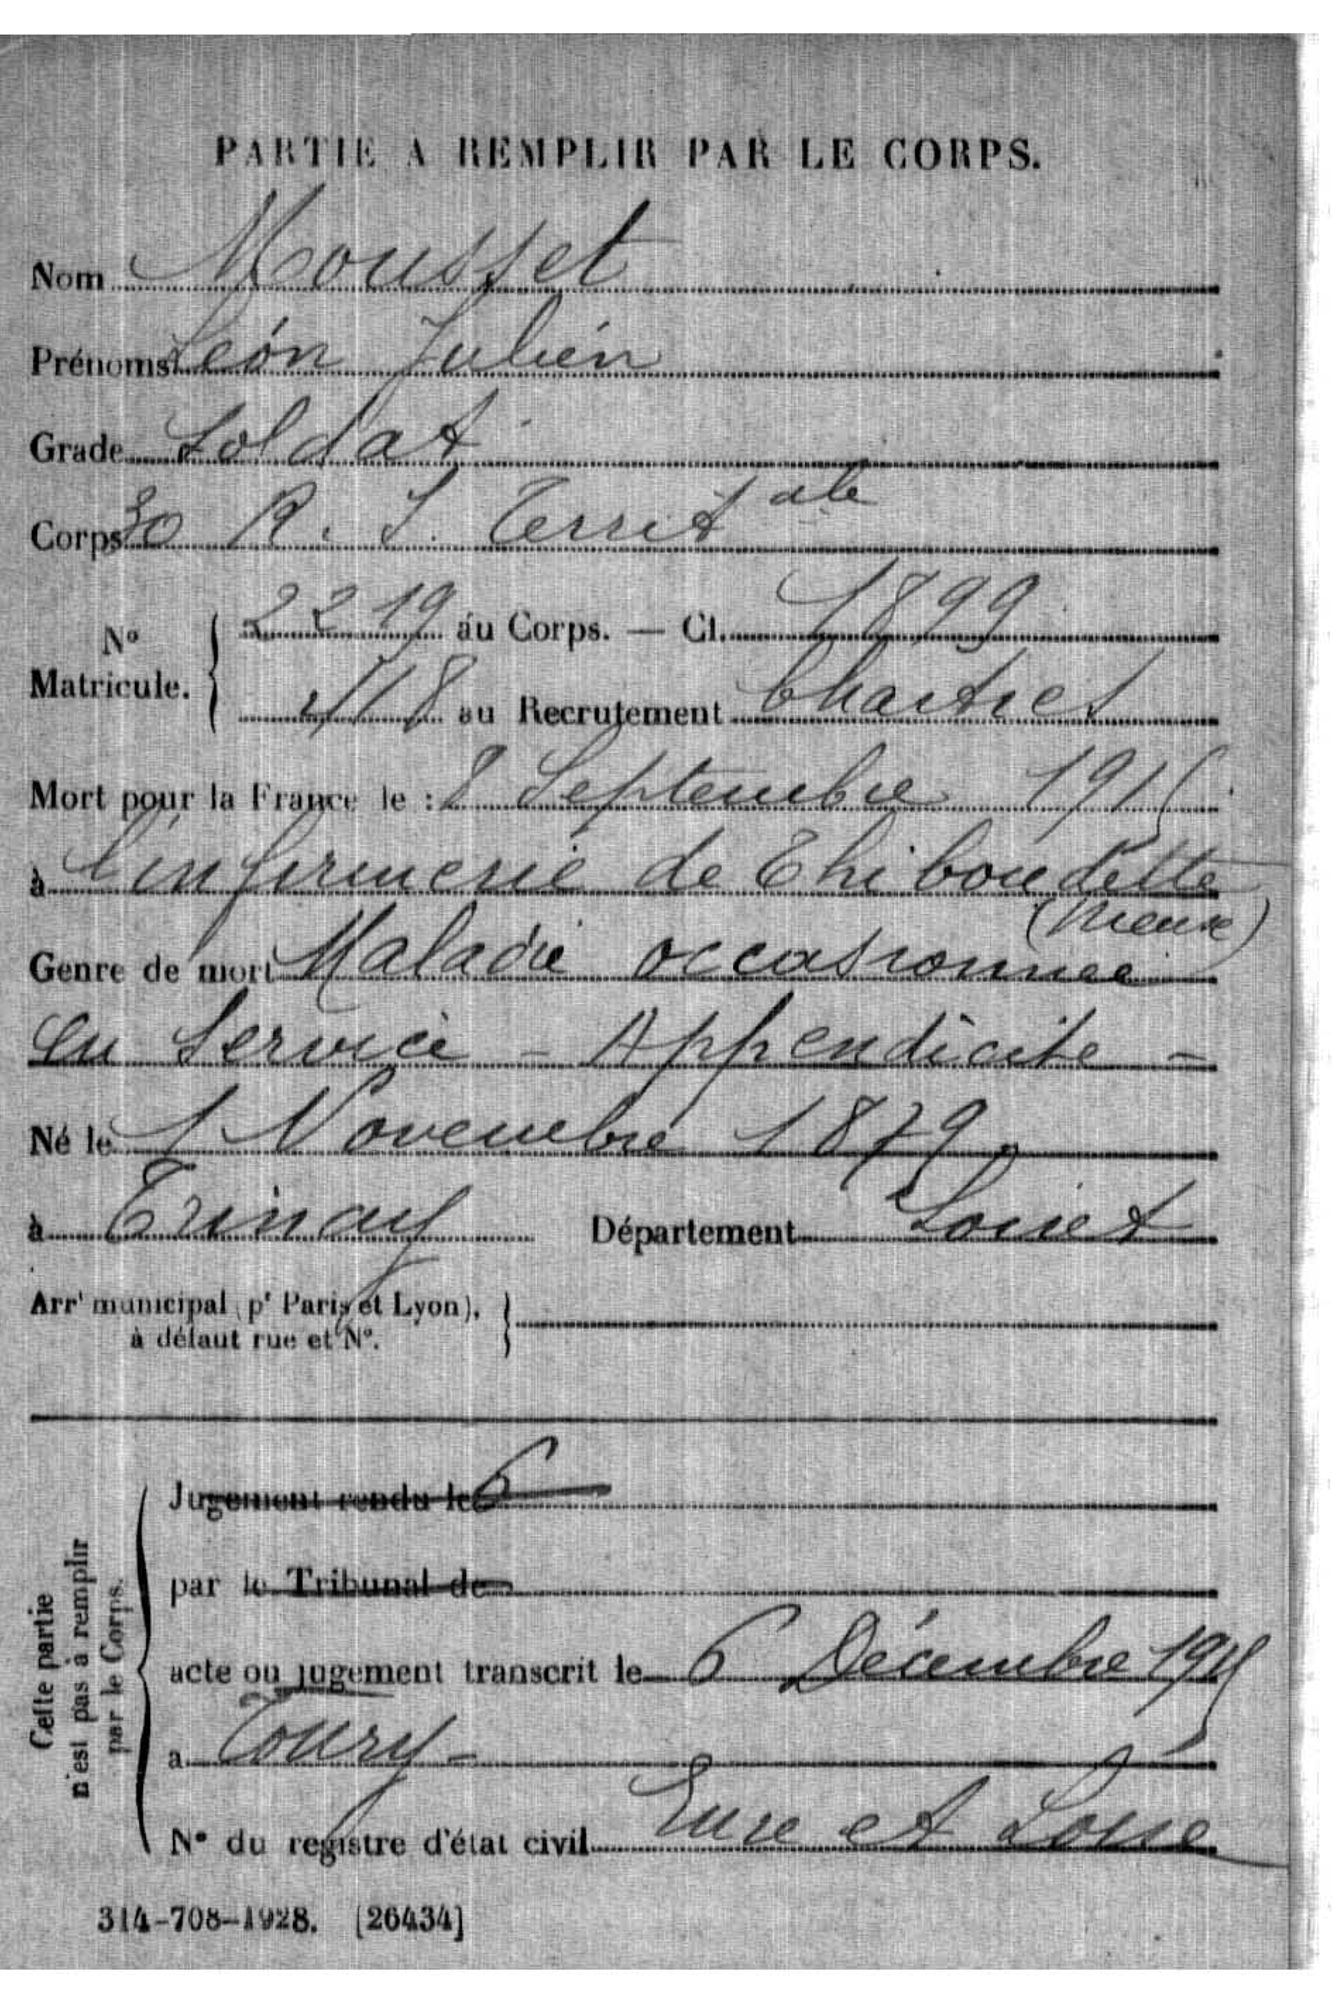 PARTIE A REMPLIR PAR LE CORPS.
Nom Mousset
Prénoms Léon Julien
Grade Soldat
Corps 30 R. I. Territ ale
N° Matricule. { 2219 au Corps. — Cl. 1899
518 au Recrutement Chartres
Mort pour la France le : 8 Septembre 1915
à l'infirmerie de Thiboudette
(Meuse)
Genre de mort Maladie occasionnée
en Service - Appendicite -
Né le 1 Novembre 1879
à Trinay Département Loiret
Arrt municipal (pr Paris et Lyon),
à défaut rue et N°.
Jugement rendu le 6
par le Tribunal de
acte ou jugement transcrit le 6 Décembre 1915
a Toury -
N° du registre d'état civil Eure et Loire
Cette partie
n'est pas à remplir
par le Corps.
314-708-1928. [26434]